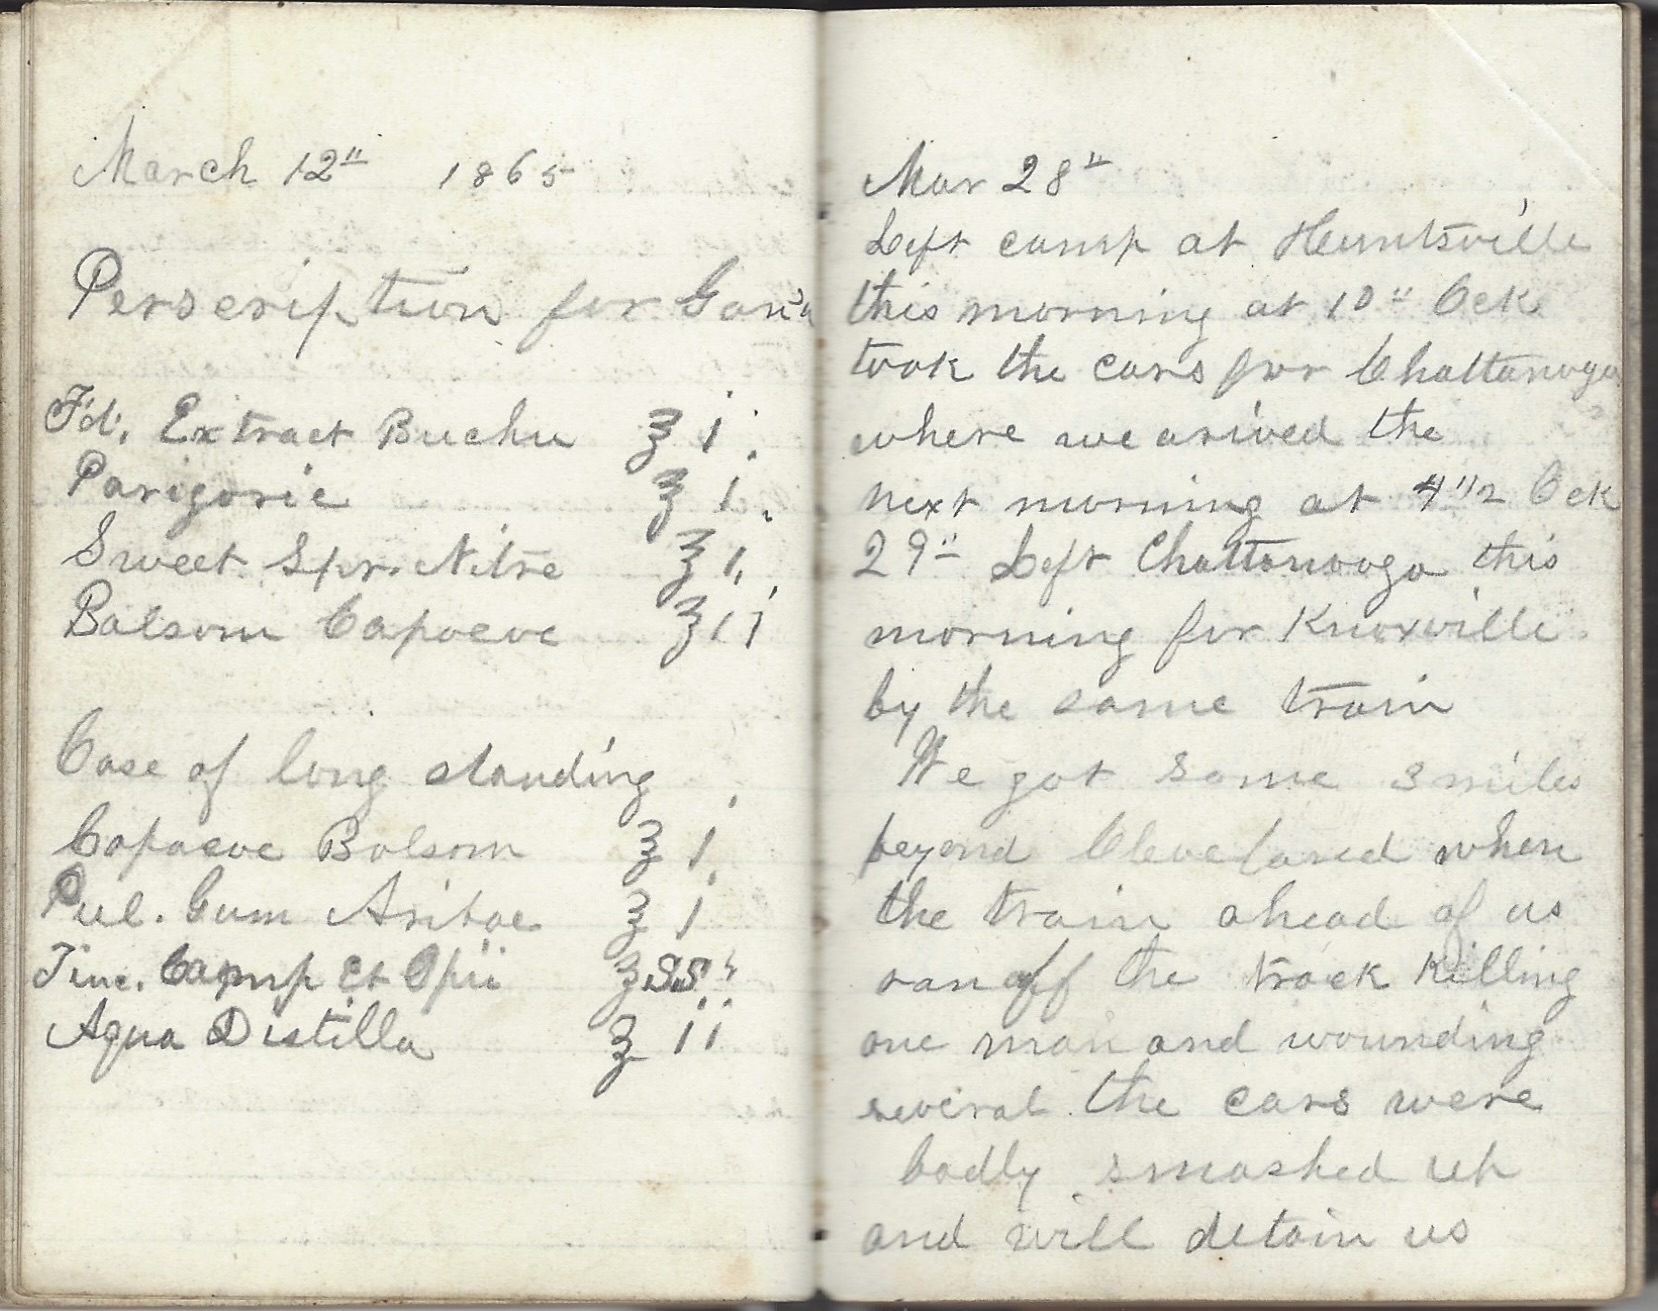 March 12" 1865
Perscription for Gon'a
Fd. Extract Buchu ℥ i.
Parigoric ℥ i.
Sweet Spr. Nitre ℥ i.
Balsom Capaeve ℥ ii
Case of long standing
Copaeve Balsom ℥ i
Pul. Gum Aribae ℥ i
Tinc. Camp et Opii ℥ ss
Aqua Distilla ℥ ii
Mar 28"
Left camp at Huntsville
this morning at 10" Ock
took the cars for Chattanooga
where we arived the
next morning at 4 1/2 Ock
29" Left Chattanooga this
morning for Knoxville.
by the same train
We got some 3 miles
beyond Cleveland when
the train ahead of us
ran off the track killing
one man and wounding
several the cars were
badly smashed up
and will detain us